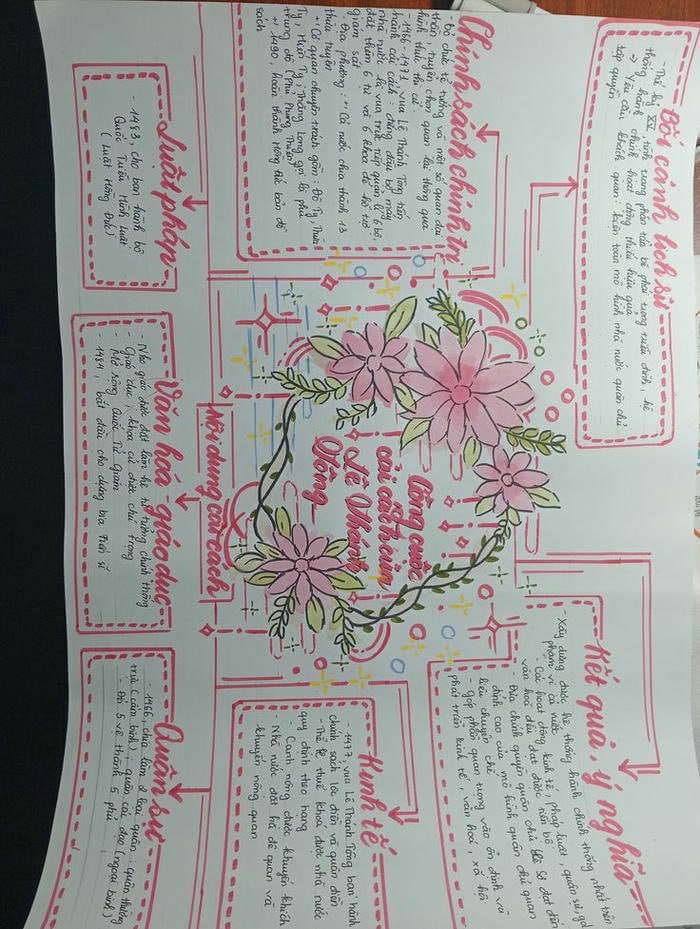 Công cuộc
cải cách của
Lê Thánh
Tông
Bối cảnh lịch sử
- Thế kỷ XV, tình trạng phân tán bè phái trong triều đình, hệ
thống hành chính hoạt động thiếu hiệu quả
=> Yêu cầu khách quan: kiện toàn mô hình nhà nước quân chủ
tập quyền
Nội dung cải cách
Chính sách chính trị
- Bỏ chức tể tướng và một số quan đại
thần, tuyển chọn quan lại thông qua
hình thức thi cử.
- 1466-1471, vua Lê Thánh Tông tiến
hành cải cách đứng đầu bộ máy
nhà nước là vua trực tiếp quản lí 6 bộ,
đặt thêm 6 tự và 6 khoa để hỗ trợ
giám sát
- Địa phương: +) Cả nước chia thành 13
thừa tuyên
+) Cơ quan chuyên trách gồm: Đô Ty, Thừa
Ty, Hiến Ty; Thăng Long gọi là phủ
trung đô (Phủ Phụng Thiên)
+) 1490, hoàn thành Hồng Đức bản đồ
sách
Luật pháp
- 1483, cho ban hành bộ
Quốc Triều Hình Luật
(Luật Hồng Đức)
Văn hoá-giáo dục
- Nho giáo được đặt làm hệ tư tưởng chính thống
- Giáo dục, khoa cử được chú trọng
- Mở rộng Quốc Tử Giám
- 1484, bắt đầu cho dựng bia Tiến sĩ
Quân sự
- 1466, chia làm 2 loại quân: quân thường
trực (cấm binh), quân các đạo (ngoại binh)
- Đổi 5 vệ thành 5 phủ
Kinh tế
- 1477, vua Lê Thánh Tông ban hành
chính sách lộc điền và quân điền
- Thể lệ thuế khoá được nhà nước
quy định theo hạng
- Canh nông được khuyến khích
- Nhà nước đặt hà đê quan và
khuyến nông quan
Kết quả, ý nghĩa
- Xây dựng được hệ thống hành chính thống nhất trên
phạm vi cả nước
- Các hoạt động kinh tế, pháp luật, quân sự, gd
văn hoá đều đạt được tiến bộ
- Đưa chính quyền quân chủ Lê Sơ đạt đến
đỉnh cao của mô hình quân chủ quan
liêu chuyên chế
- Góp phần quan trọng vào ổn định và
phát triển kinh tế, văn hoá, xã hội